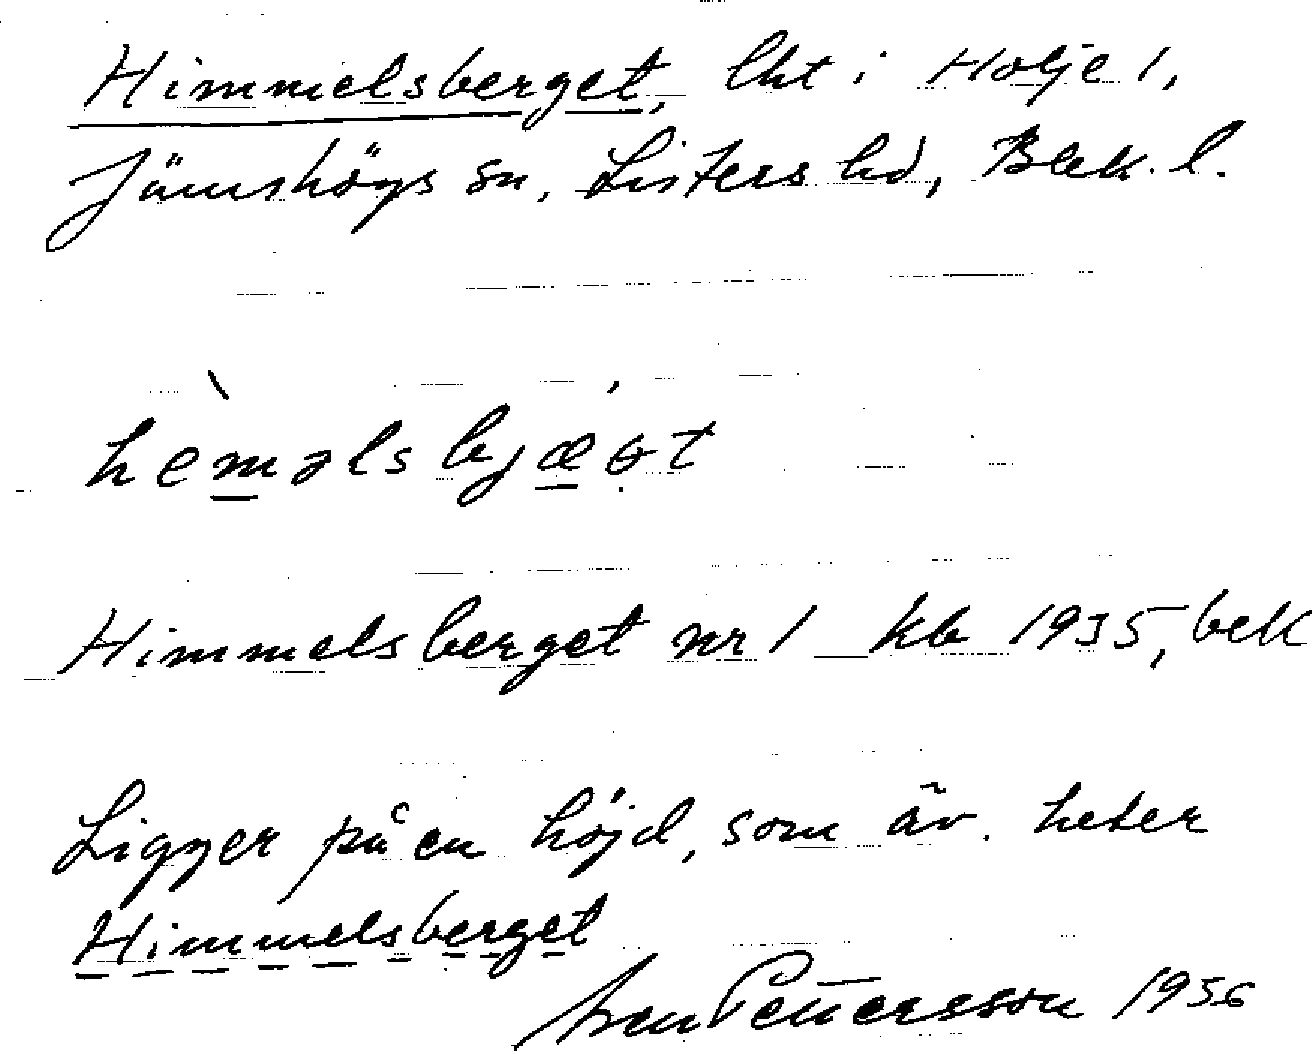 Himmelsberget, lht i Holje 1,
Jämshögs sn, Listers hd, Blek. l.
hèməlsbjæ'ɵt
Himmelsberget nr 1 kb 1935, bek
Ligger på en höjd, som äv. heter
Himmelsberget
Pettersson 1956